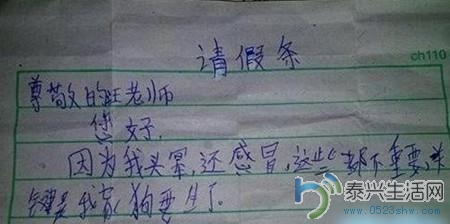 请假条
ch110
尊敬的旺老师
您好.
因为我头晕,还感冒,这些都不重要,关
键是我家狗要生了.
泰兴生活网
www.0523shw.com